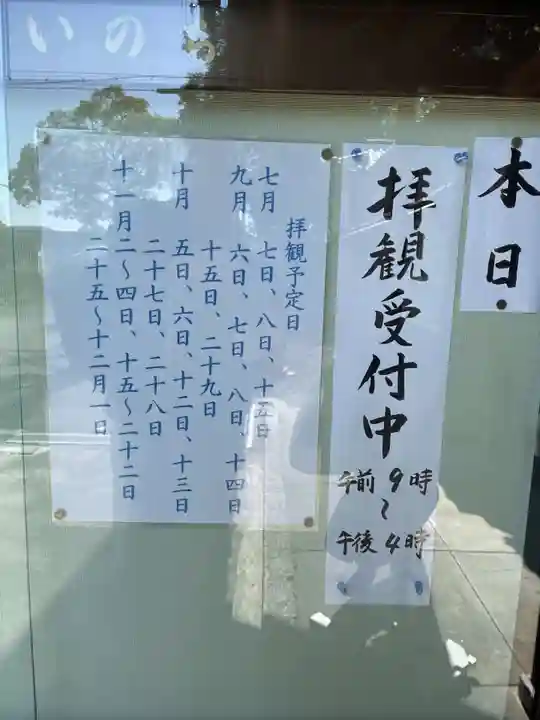 本日
拝観受付中
午前9時
〜
午後4時
拝観予定日
七月 七日、八日、十五日
九月 六日、七日、八日、十四日
十五日、二十九日
十月 五日、六日、十二日、十三日
二十七日、二十八日
十一月二〜四日、十五〜二十二日
二十五〜十二月一日
いのち